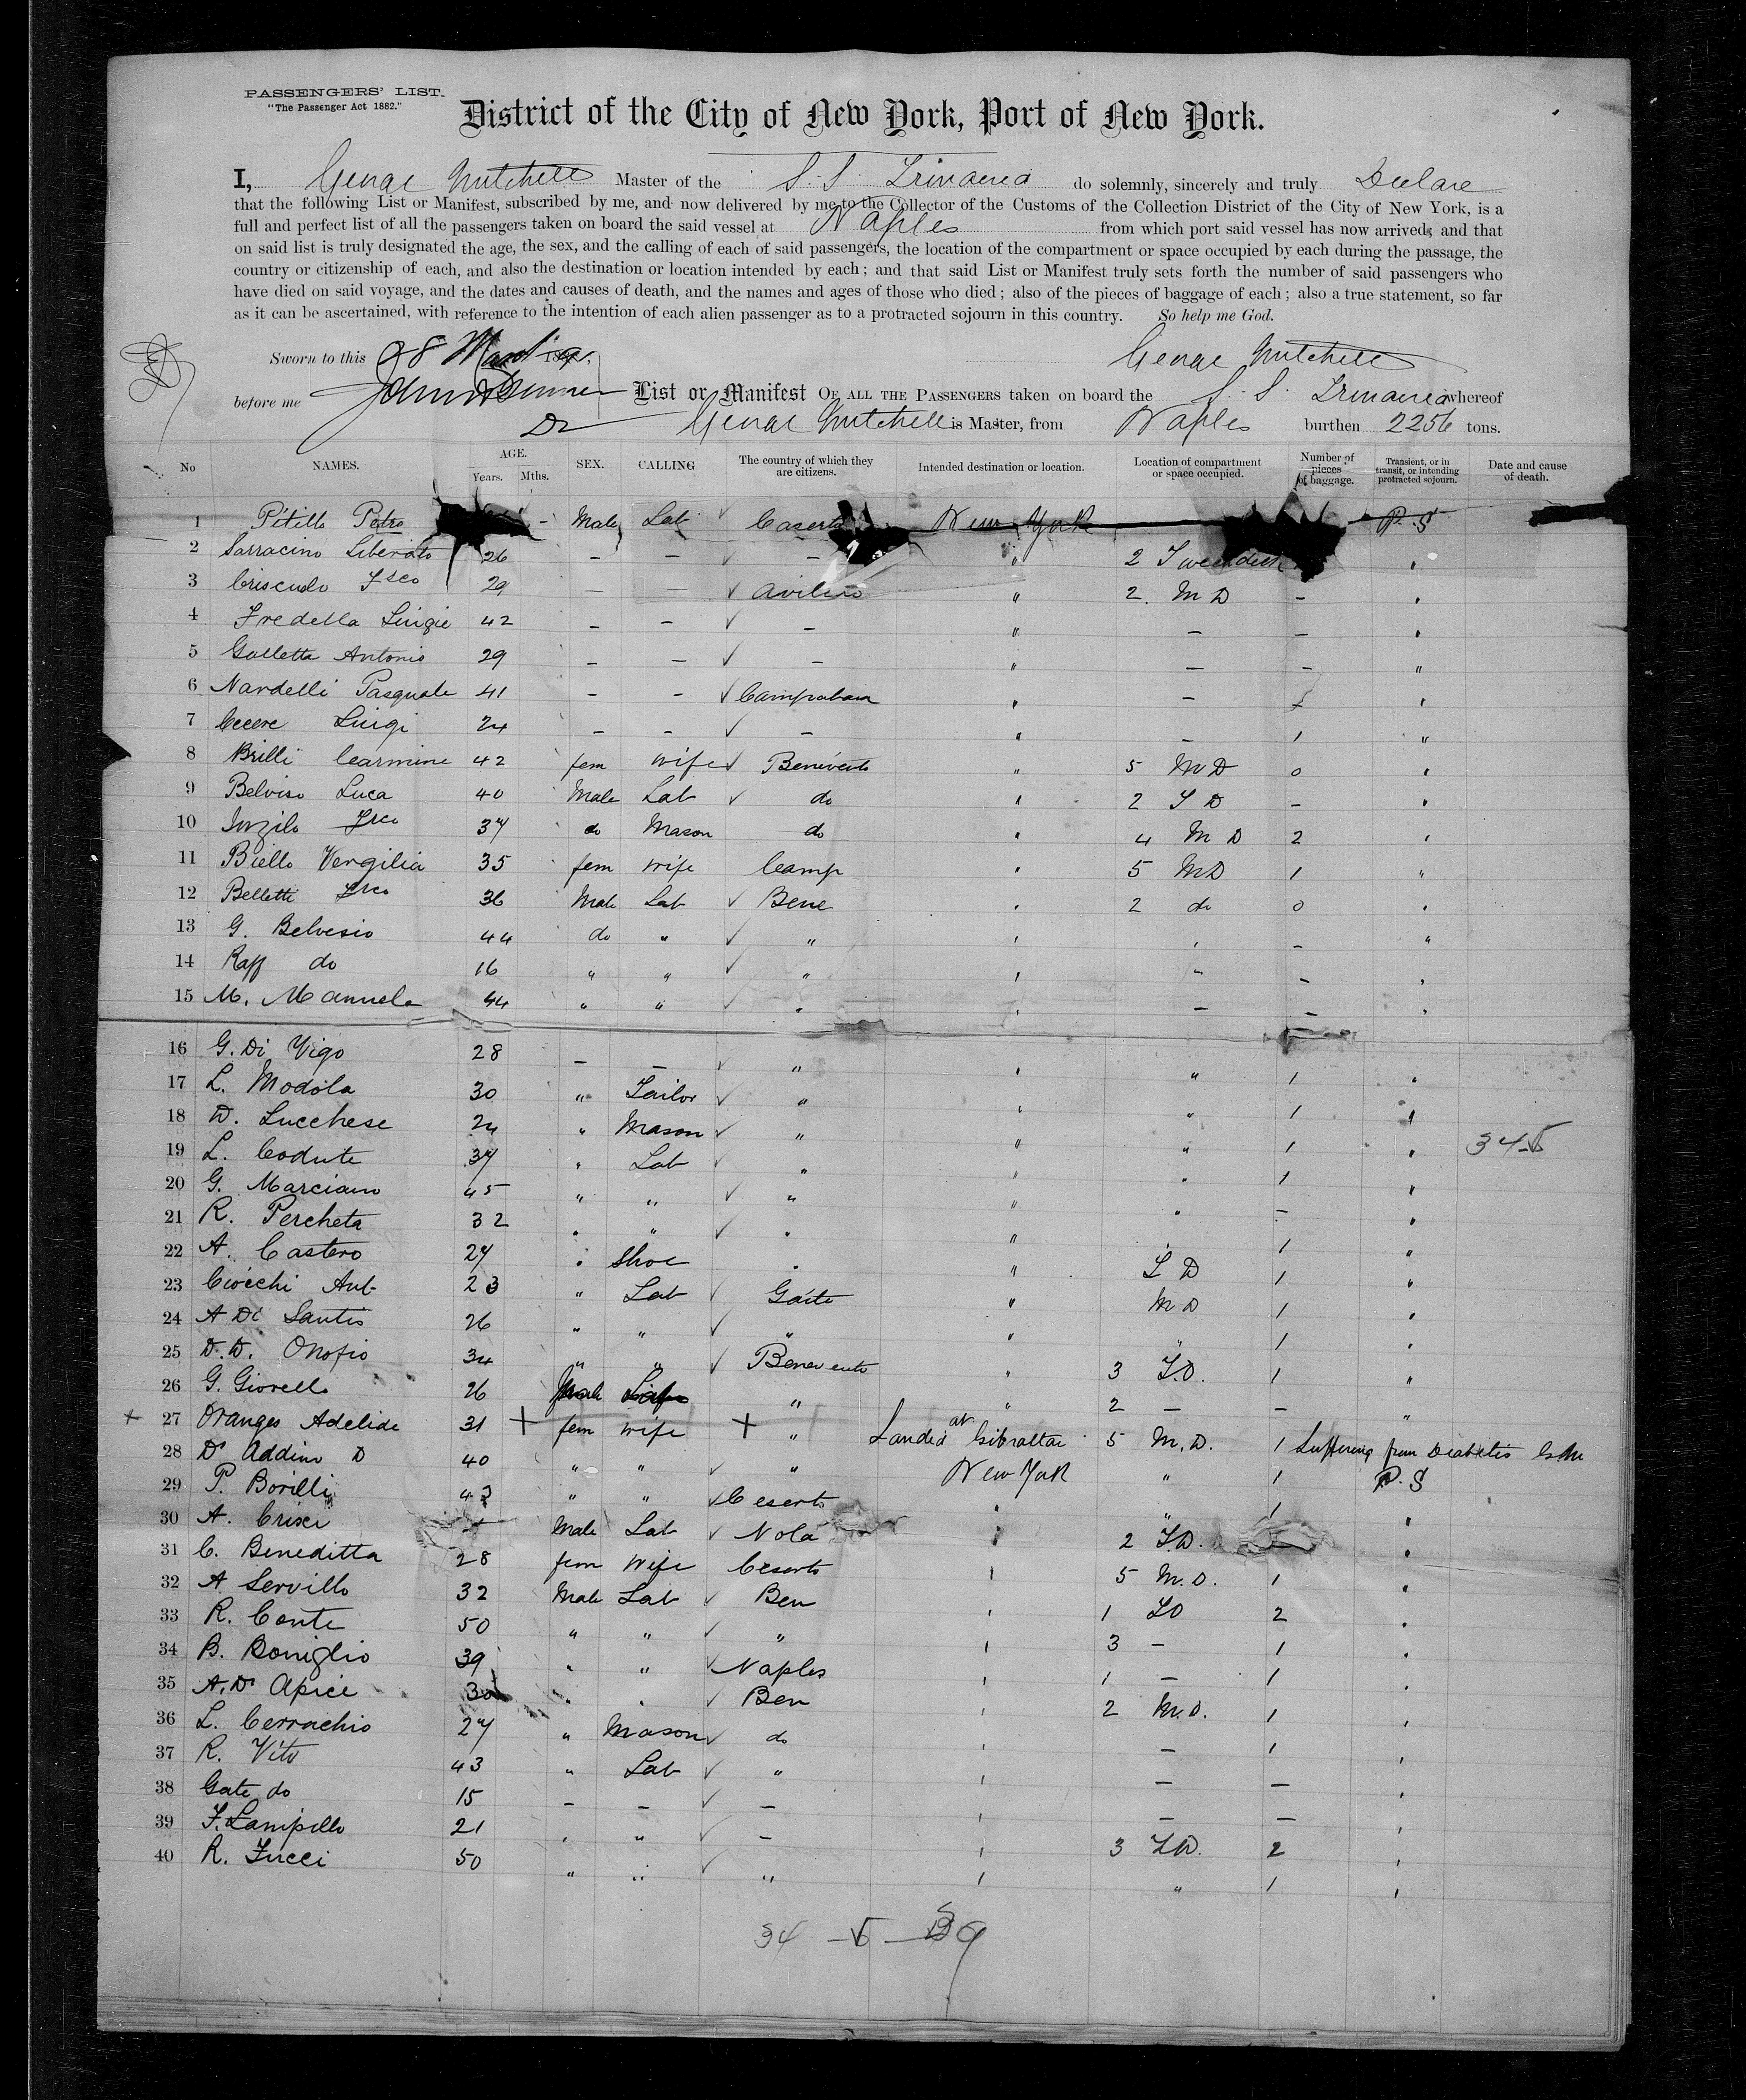 PASSENGERS' LIST.
"The Passenger Act 1882."
District of the City of New York, Port of New York.
I, George Mitchell Master of the S.S. Trinacria do solemnly, sincerely and truly Declare
that the following List or Manifest, subscribed by me, and now delivered by me to the Collector of the Customs of the Collection District of the City of New York, is a
full and perfect list of all the passengers taken on board the said vessel at Naples from which port said vessel has now arrived; and that
on said list is truly designated the age, the sex, and the calling of each of said passengers, the location of the compartment or space occupied by each during the passage, the
country or citizenship of each, and also the destination or location intended by each; and that said List or Manifest truly sets forth the number of said passengers who
have died on said voyage, and the dates and causes of death, and the names and ages of those who died; also of the pieces of baggage of each; also a true statement, so far
as it can be ascertained, with reference to the intention of each alien passenger as to a protracted sojourn in this country. So help me God.
Sworn to this 28 March 189 George Mitchell
before me List or Manifest OF ALL THE PASSENGERS taken on board the S.S. Trinacria whereof
George Mitchell is Master, from Naples burthen 2256 tons.
No NAMES. AGE. Years. Mths. SEX. CALLING The country of which they are citizens. Intended destination or location. Location of compartment or space occupied. Number of pieces of baggage. Transient, or in transit, or intending protracted sojourn. Date and cause of death.
1 Pitillo Petro - Male Lab ✓ Caserta New York P.S
2 Sarracino Liberato 26 - - ✓ - " 2 Tweendeck "
3 Criscuolo Fsco 29 - - ✓ Avilino " 2. M D - "
4 Fredella Luigie 42 - - ✓ - " - - "
5 Galletta Antonio 29 - - ✓ - " - - "
6 Nardelli Pasquale 41 - - ✓ Campobaa " - "
7 Cecere Luigi 24 - - ✓ - " - 1 "
8 Brilli Carmine 42 fem wife ✓ Benivento " 5 M D 0 "
9 Belviso Luca 40 Male Lab ✓ do " 2 T D - "
10 Inzilo Frco 37 do Mason do " 4 M D 2 "
11 Biello Vergilia 35 fem wife Camp " 5 M D 1 "
12 Belletti Frco 36 Male Lab ✓ Bene " 2 do 0 "
13 G. Belvesio 44 do " ✓ " " " - "
14 Raff do 16 " " ✓ " " " - "
15 M. Manuele 44 " " ✓ " " - - "
16 G. Di Vigo 28 - - ✓ " " " 1 "
17 L. Modola 30 " Tailor ✓ " " " 1 "
18 D. Lucchese 24 " Mason ✓ " " " 1 "
19 L. Codute 37 " Lab ✓ " " " 1 " 34-5
20 G. Marciano 45 " " ✓ " " " - "
21 R. Percheta 32 " " ✓ " " 1 "
22 A. Castero 27 " Shoe " " L D 1 "
23 Ciocchi Ant 23 " Lab ✓ Gaite " M D 1 "
24 A Di Santis 26 " " ✓ " " " 1 "
25 D. D. Onofio 34 " " ✓ Benevento " 3 T.D. 1 "
26 G. Giorello 26 Male " " 2 - - "
+ 27 Oranges Adelide 31 + fem wife + " Landed at Gibraltar 5 M.D. 1 Suffering from Diabetis
28 D' Addino D 40 " " ✓ " New York " 1 P.S
29 P. Borilli 43 " " ✓ Ceserto " " 1 "
30 A. Crisci Male Lab ✓ Nola " 2 T.D. "
31 C. Beneditta 28 fem Wife Ceserto " 5 M.D. 1 "
32 A Servillo 32 Male Lab ✓ Ben " 1 LD 2 "
33 R. Conte 50 " " ✓ " " 3 - 1 "
34 B. Boniglio 39 " " ✓ Naples " 1 - 1 "
35 A. D' Apice 30 " " ✓ Ben " 2 M.D. 1 "
36 L. Cerrachio 27 " Mason ✓ do " - 1 "
37 R. Vito 43 " Lab ✓ " " - - "
38 Gate do 15 - - ✓ - " - - "
39 F. Lampillo 21 " " ✓ - " 3 T.D. 2 "
40 R. Zucci 50 " " ✓ " " " 1 "
34 - 5 - 39